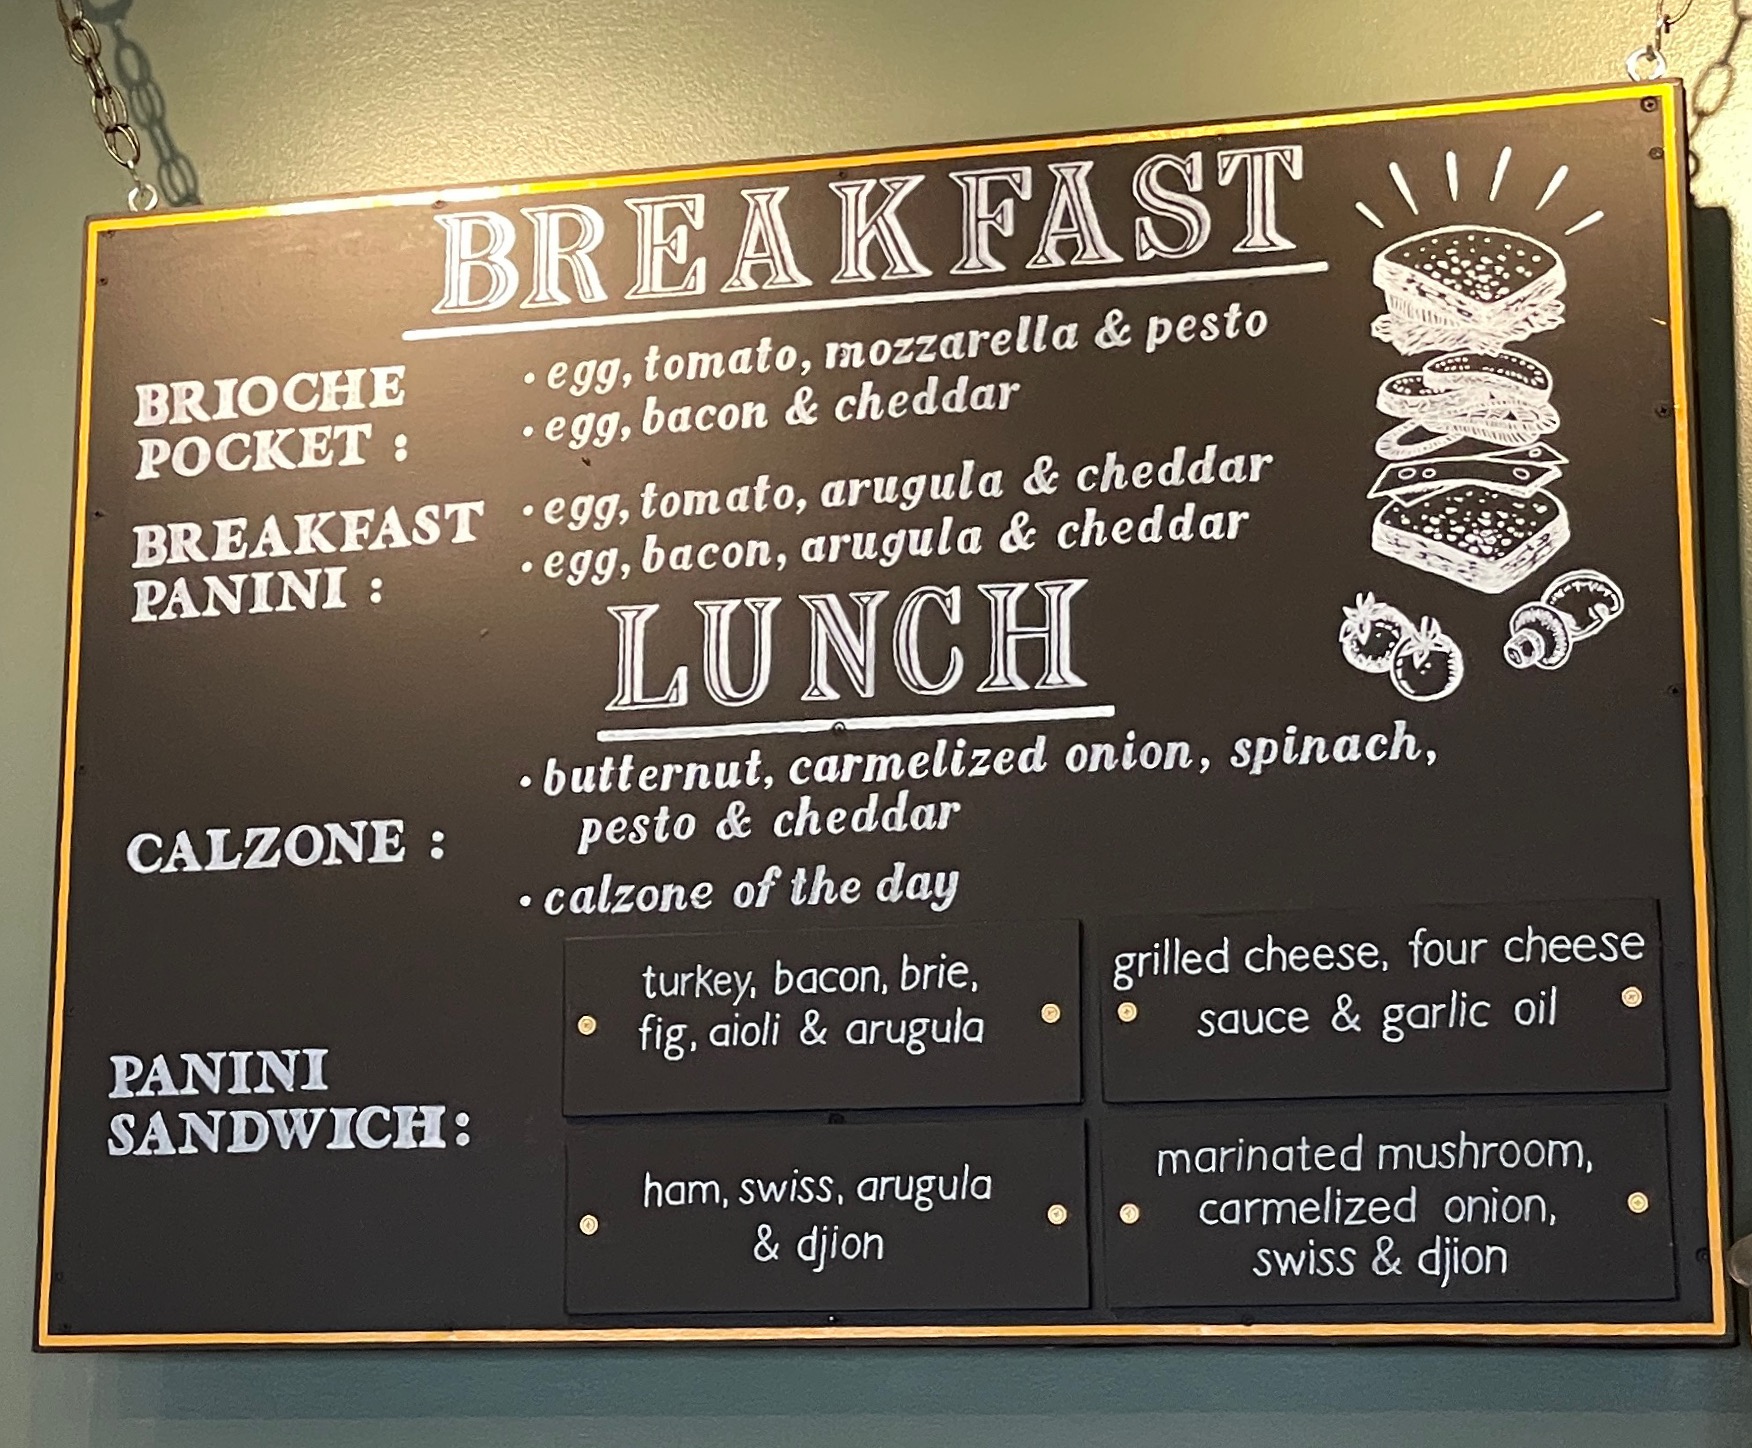 BREAKFAST
BRIOCHE
POCKET :
• egg, tomato, mozzarella & pesto
• egg, bacon & cheddar
BREAKFAST
PANINI :
• egg, tomato, arugula & cheddar
• egg, bacon, arugula & cheddar
LUNCH
CALZONE :
• butternut, carmelized onion, spinach,
pesto & cheddar
• calzone of the day
PANINI
SANDWICH:
turkey, bacon, brie,
fig, aioli & arugula
grilled cheese, four cheese
sauce & garlic oil
ham, swiss, arugula
& djion
marinated mushroom,
carmelized onion,
swiss & djion